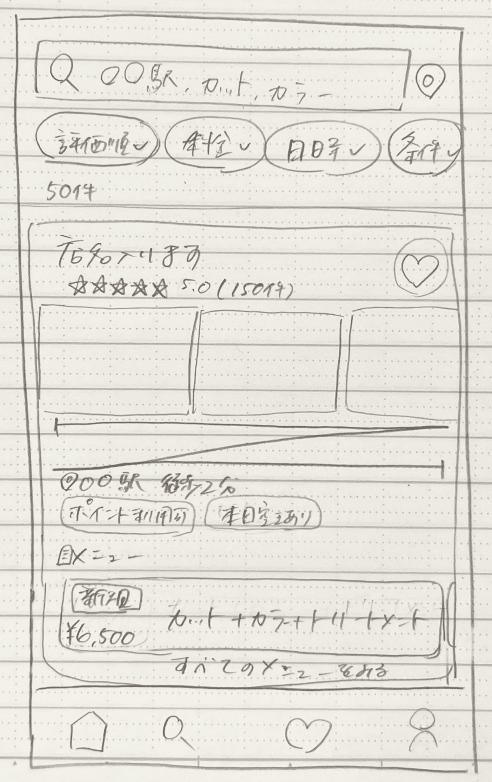 〇〇駅、カット、カラー
評価順 料金 日時 条件
50件
店名入ります
☆☆☆☆☆ 5.0 (150件)
〇〇駅 徒歩2分
ポイント利用可 本日空きあり
メニュー
新規
カット+カラー+トリートメント
¥6,500
すべてのメニューをみる